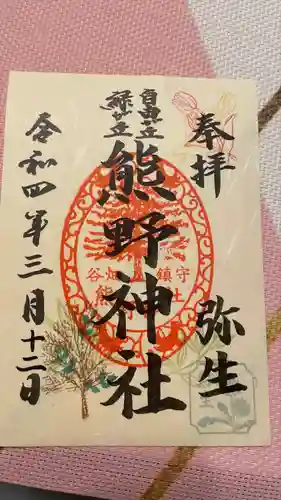 奉拝
弥生
自由が丘
緑が丘
熊野神社
谷畑 鎮守
熊野神社
令和四年三月十二日